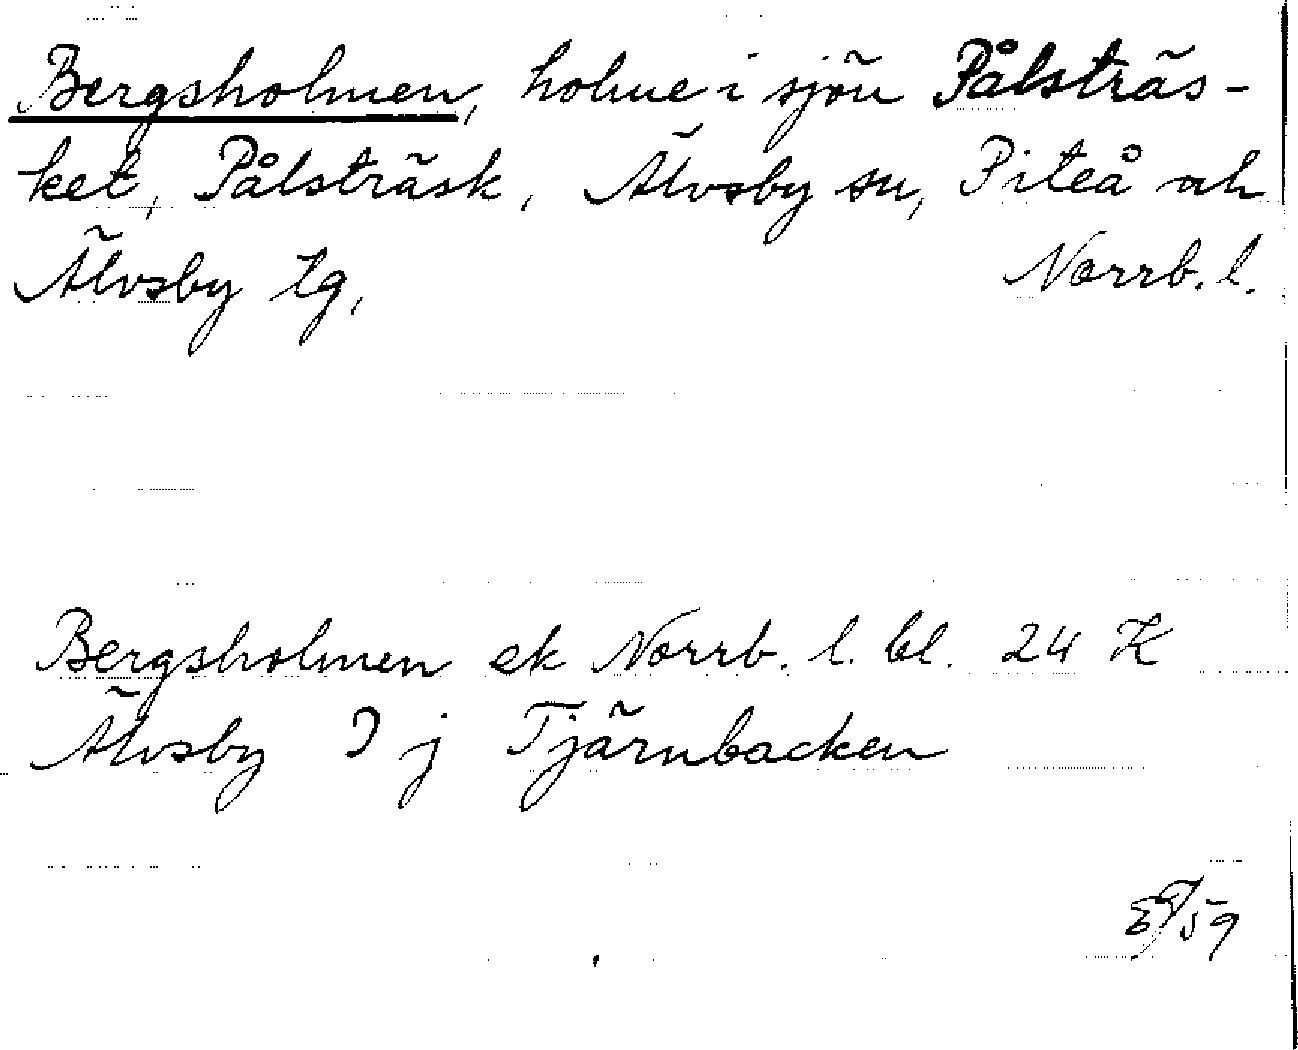 Bergsholmen, holme i sjön Pålsträs-
ket, Pålsträsk, Älvsby sn, Piteå och
Älvsby tg, Norrb. l.
Bergsholmen ek Norrb. l. bl. 24 K
Älvsby I j Tjärnbacken
59